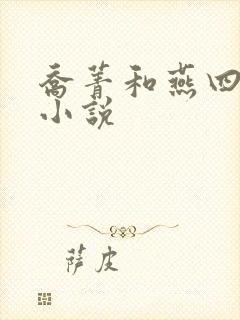 乔菁和燕四
小说
萨皮